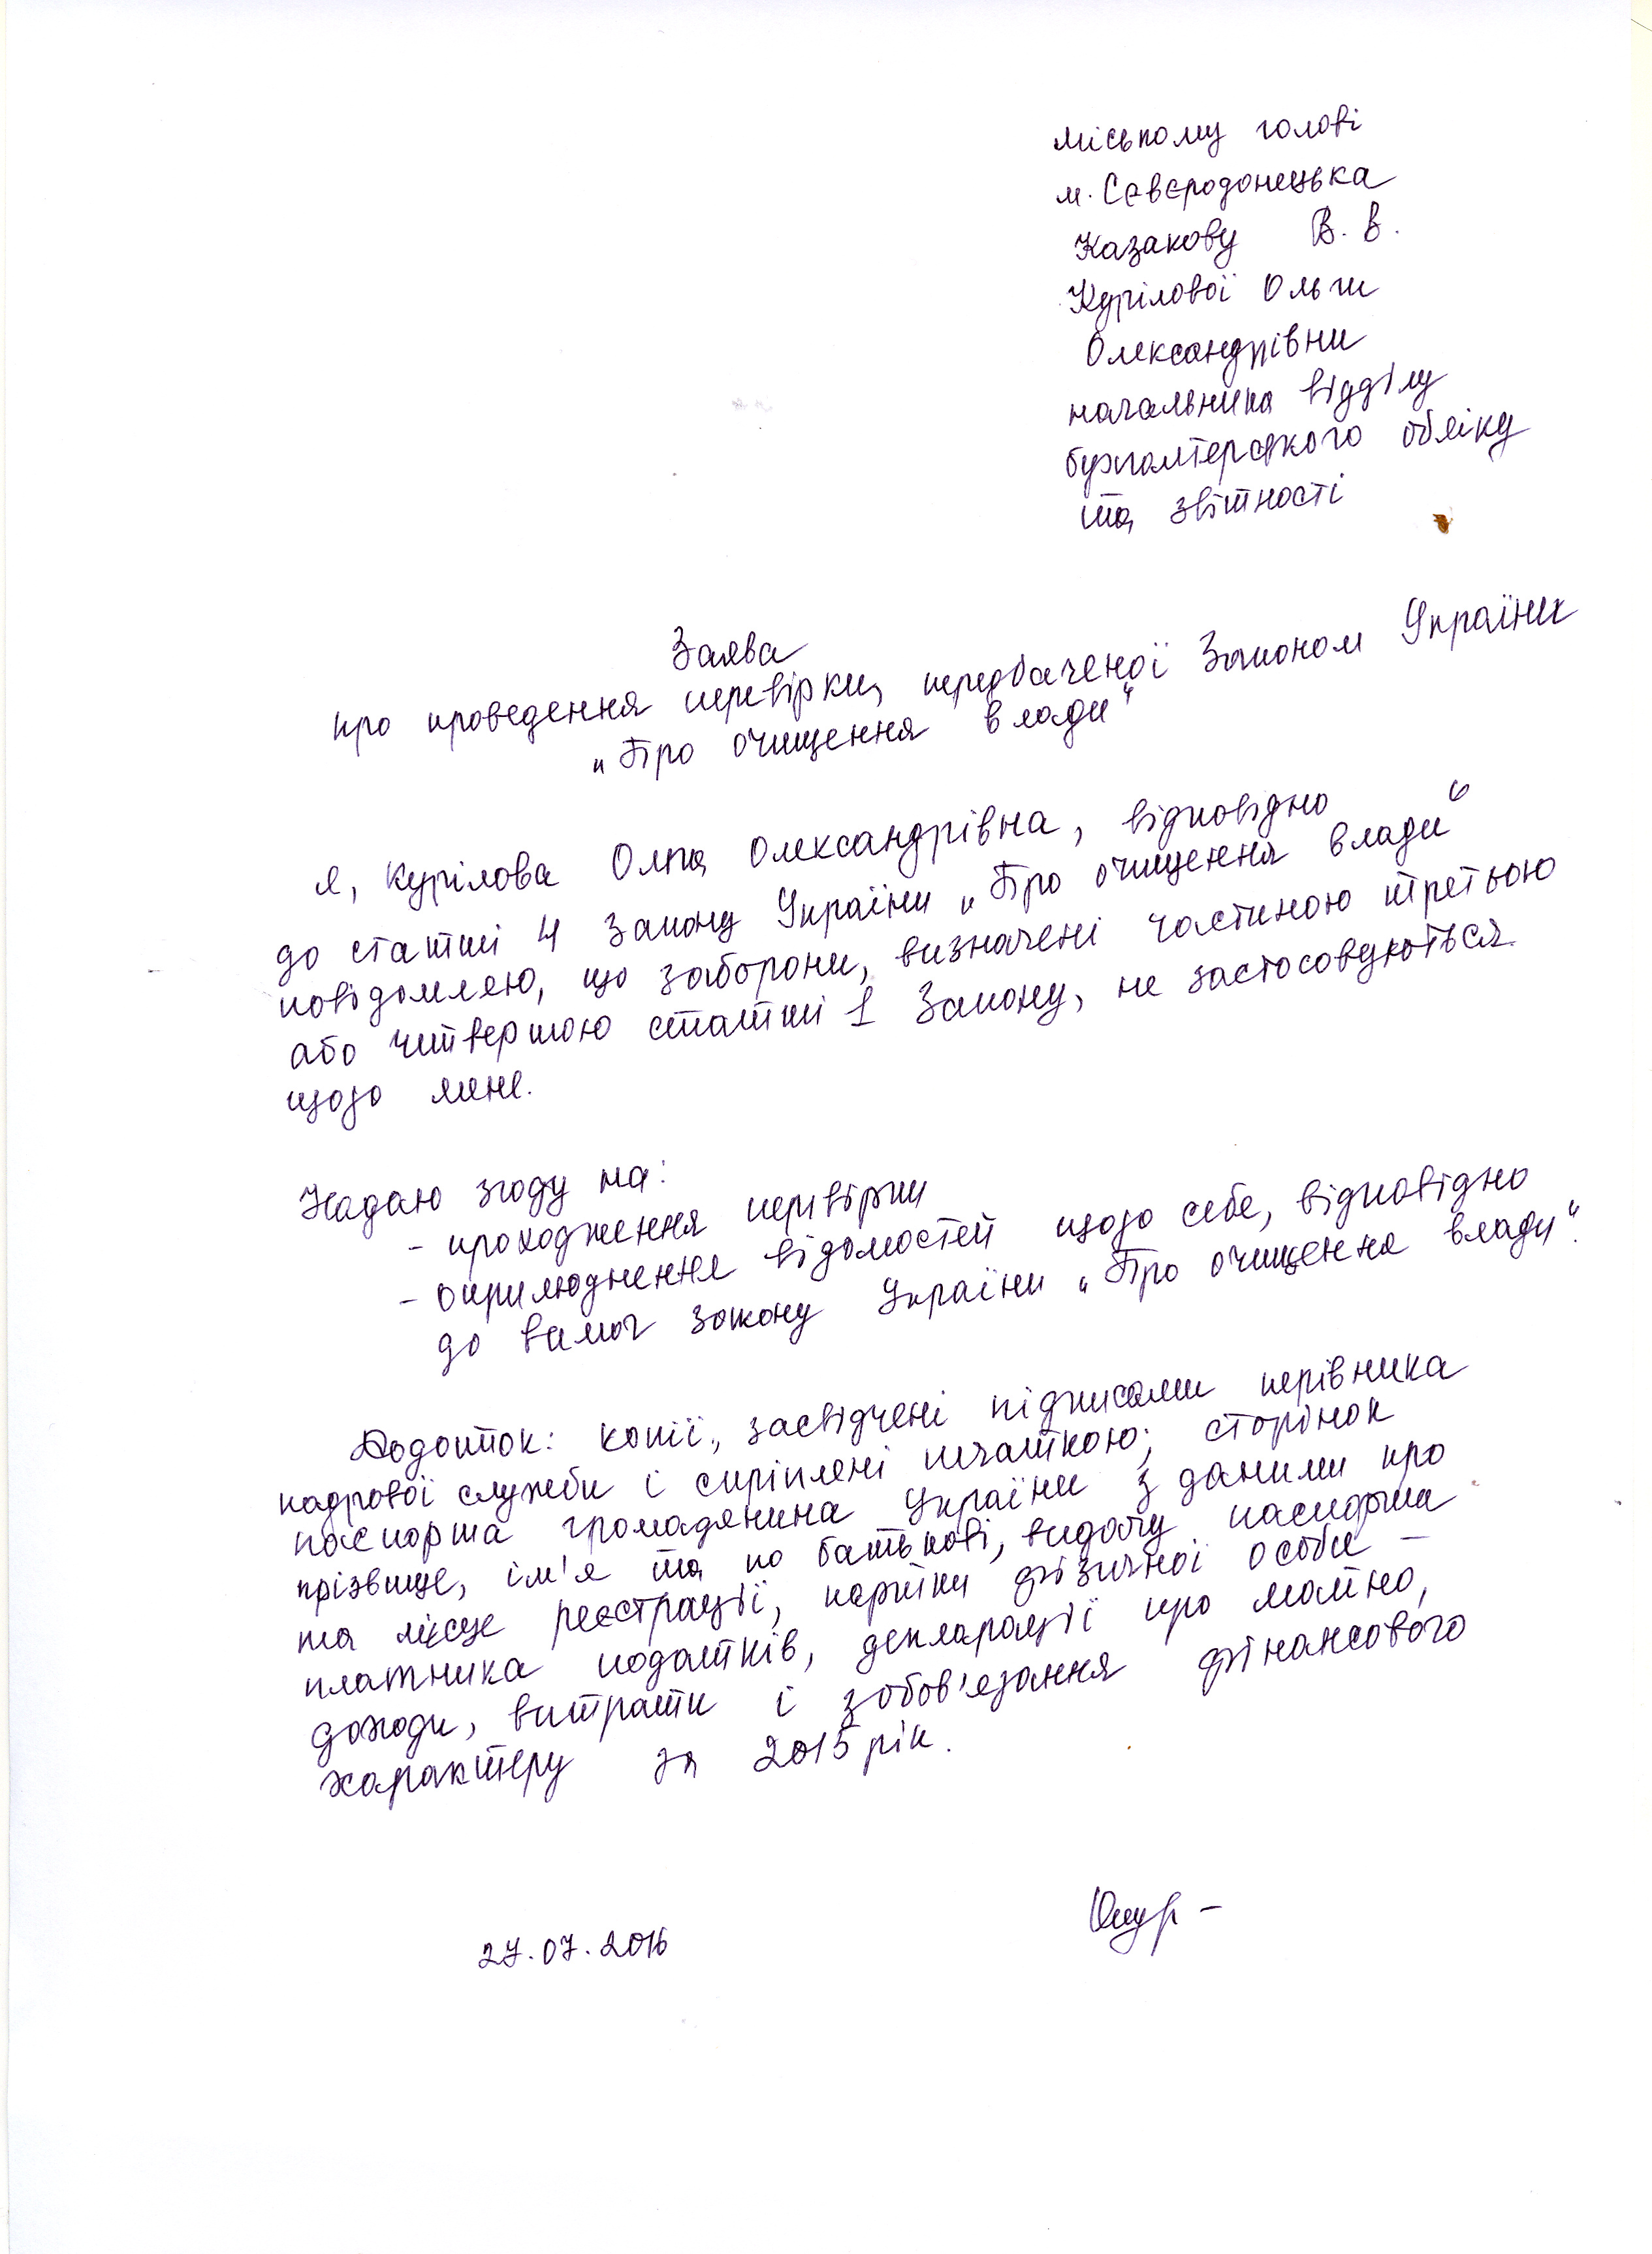 міському голові
м. Сєвєродонецька
Казакову В. В.
Курілової Ольги
Олександрівни
начальника відділу
бухгалтерського обліку
та звітності
Заява
про проведення перевірки, передбаченої Законом України
„Про очищення влади“
Я, Курілова Ольга Олександрівна, відповідно
до статті 4 Закону України „Про очищення влади“
повідомляю, що заборони, визначені частиною третьою
або четвертою статті 1 Закону, не застосовуються
щодо мене.
Надаю згоду на:
- проходження перевірки
- оприлюднення відомостей щодо себе, відповідно
до вимог Закону України „Про очищення влади“.
Додаток: копії, засвідчені підписами керівника
кадрової служби і скріплені печаткою; сторінок
паспорта громадянина України з даними про
прізвище, ім'я та по батькові, видачу паспорта
та місце реєстрації, картки фізичної особи –
платника податків, декларації про майно,
доходи, витрати і зобов'язання фінансового
характеру за 2015 рік.
27.07.2016